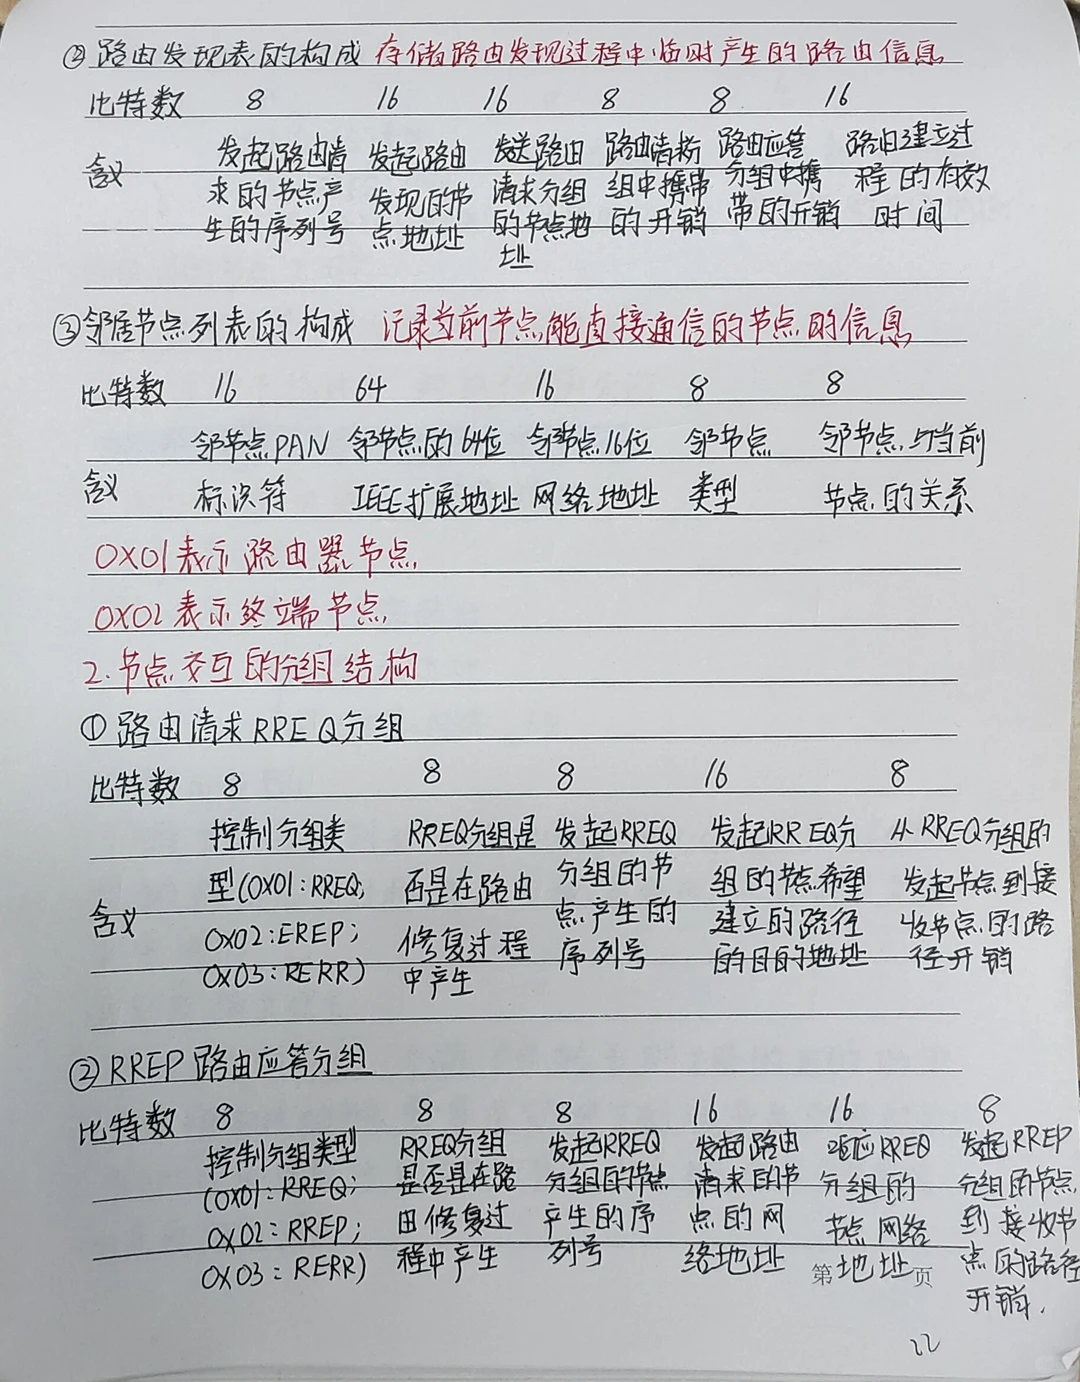 ②路由发现表的构成 存储路由发现过程中临时产生的路由信息
比特数 8 16 16 8 8 16
含义
发起路由请
求的节点产
生的序列号
发起路由
发现的节
点地址
发送路由
请求分组
的节点地
址
路由请求分
组中携带
的开销
路由应答
分组中携
带的开销
路由建立过
程的有效
时间
③邻居节点列表的构成 记录当前节点能直接通信的节点的信息
比特数 16 64 16 8 8
含义
邻节点PAN
标识符
邻节点的64位
IEEE扩展地址
邻节点16位
网络地址
邻节点
类型
邻节点与当前
节点的关系
0X01表示路由器节点
0X02表示终端节点
2.节点交互的分组结构
①路由请求RREQ分组
比特数 8 8 8 16 8
含义
控制分组类
型(0X01:RREQ;
0X02:EREP;
0X03:RERR)
RREQ分组是
否是在路由
修复过程
中产生
发起RREQ
分组的节
点产生的
序列号
发起RREQ分
组的节点希望
建立的路径
的目的地址
从RREQ分组的
发起节点到接
收节点的路
径开销
②RREP路由应答分组
比特数 8 8 8 16 16 8
控制分组类型
(0X01:RREQ;
0X02:RREP;
0X03:RERR)
RREQ分组
是否是在路
由修复过
程中产生
发起RREQ
分组的节点
产生的序
列号
发起路由
请求的节
点的网
络地址
应RREQ
分组的
节点网络
地址
发起RREP
分组的节点
到接收节
点的路径
开销.
第 页
22